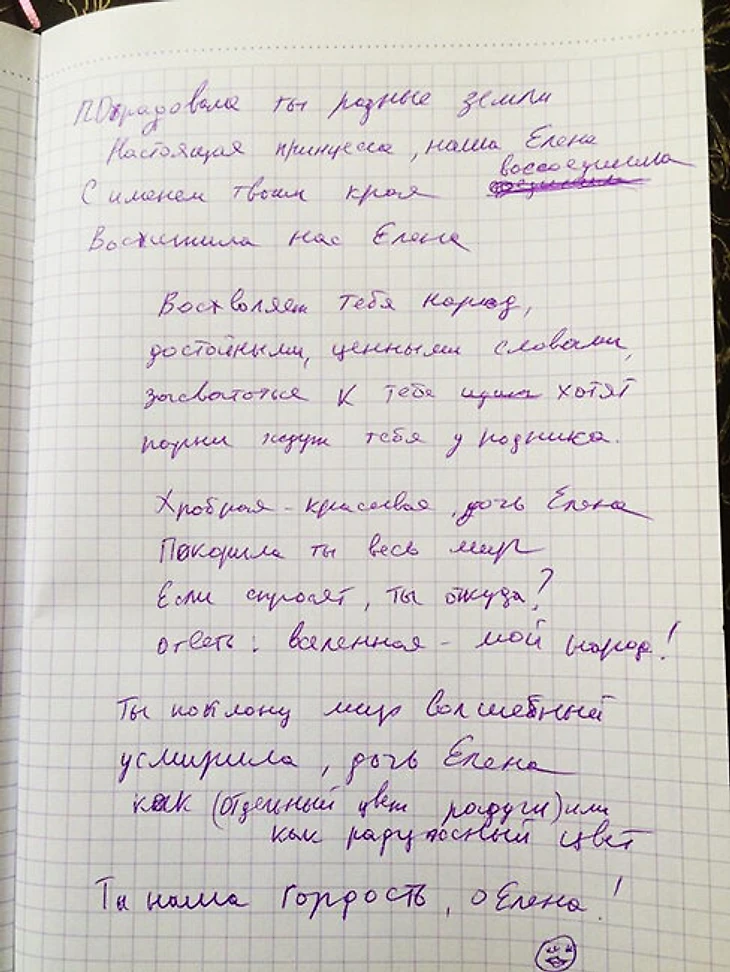 Порадовала ты разные земли
Настоящая принцесса, наша Елена
воссоединила
С именем твоим края
Восхитила нас Елена
Восхваляет тебя народ,
достойными, ценными словами,
засвататься к тебе хотят
парни ждут тебя у родника.
Храбрая - красивая, дочь Елена
Покорила ты весь мир
Если спросят, ты откуда?
Ответь: вселенная - мой народ!
Ты поклону мир волшебный
усмирила, дочь Елена
как (отдельный цвет радуги) или
как радужный цвет
Ты наша гордость, о Елена!